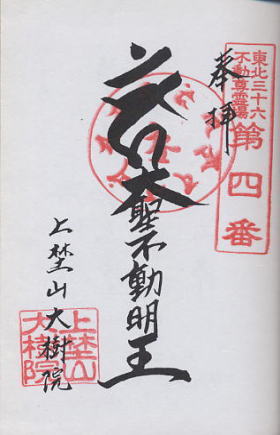 東北三十六
不動尊霊場
第四番
奉拝
大聖不動明王
上埜山大樹院
上埜山
大樹院